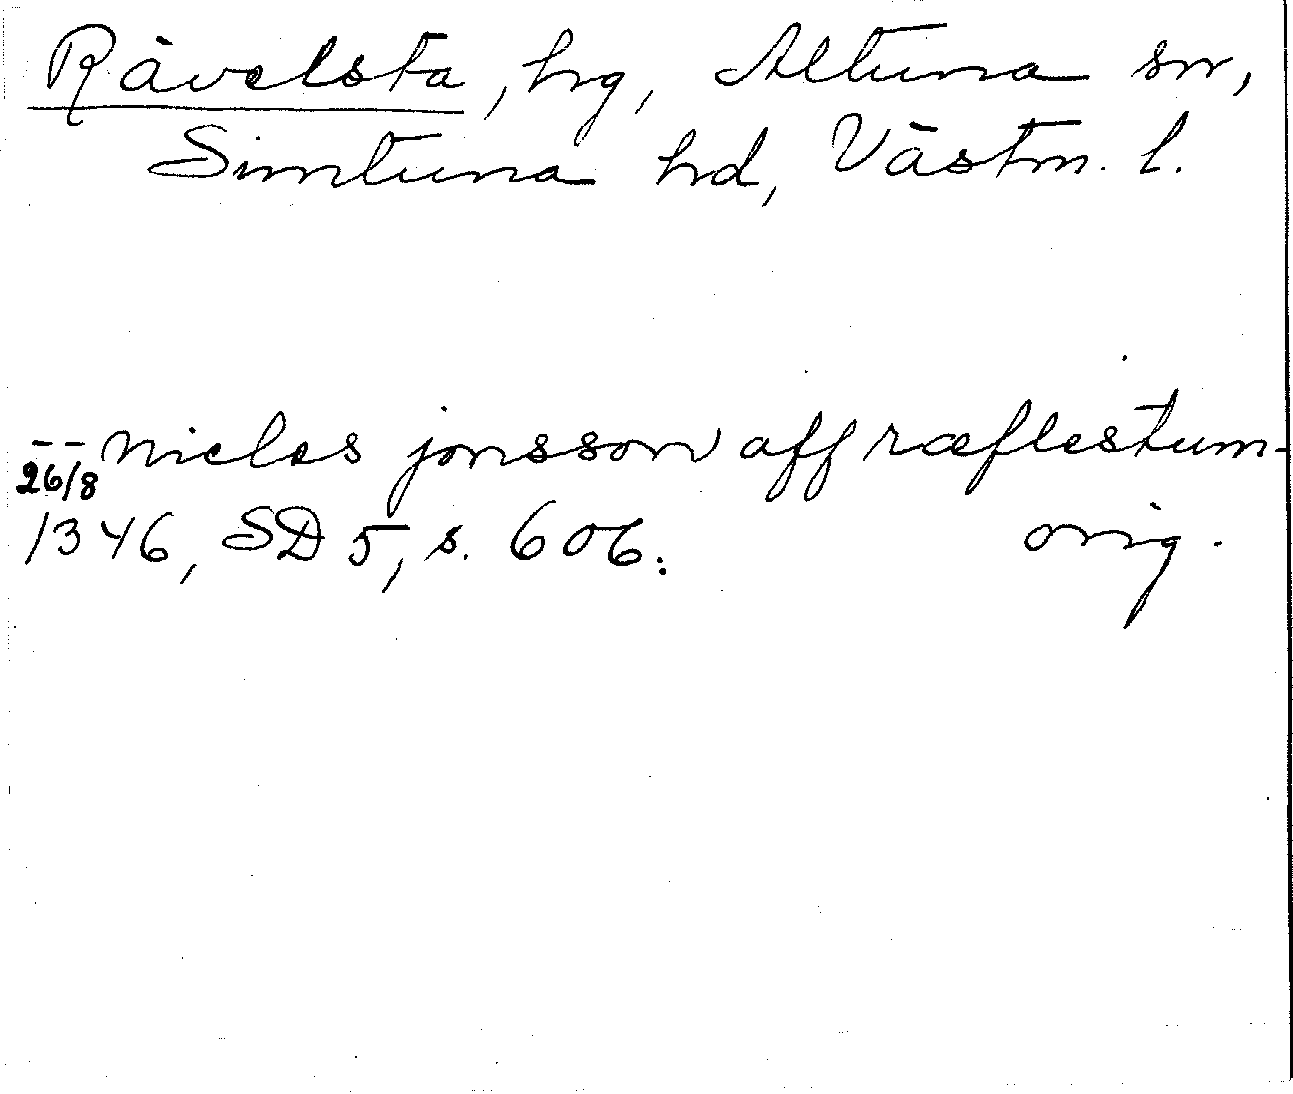 Rävelsta, hg, Altuna sn,
Simtuna hd, Västm. l.
-- nicles jonsson aff ræflestum -
26/8
1346, SD 5, s. 606. orig.